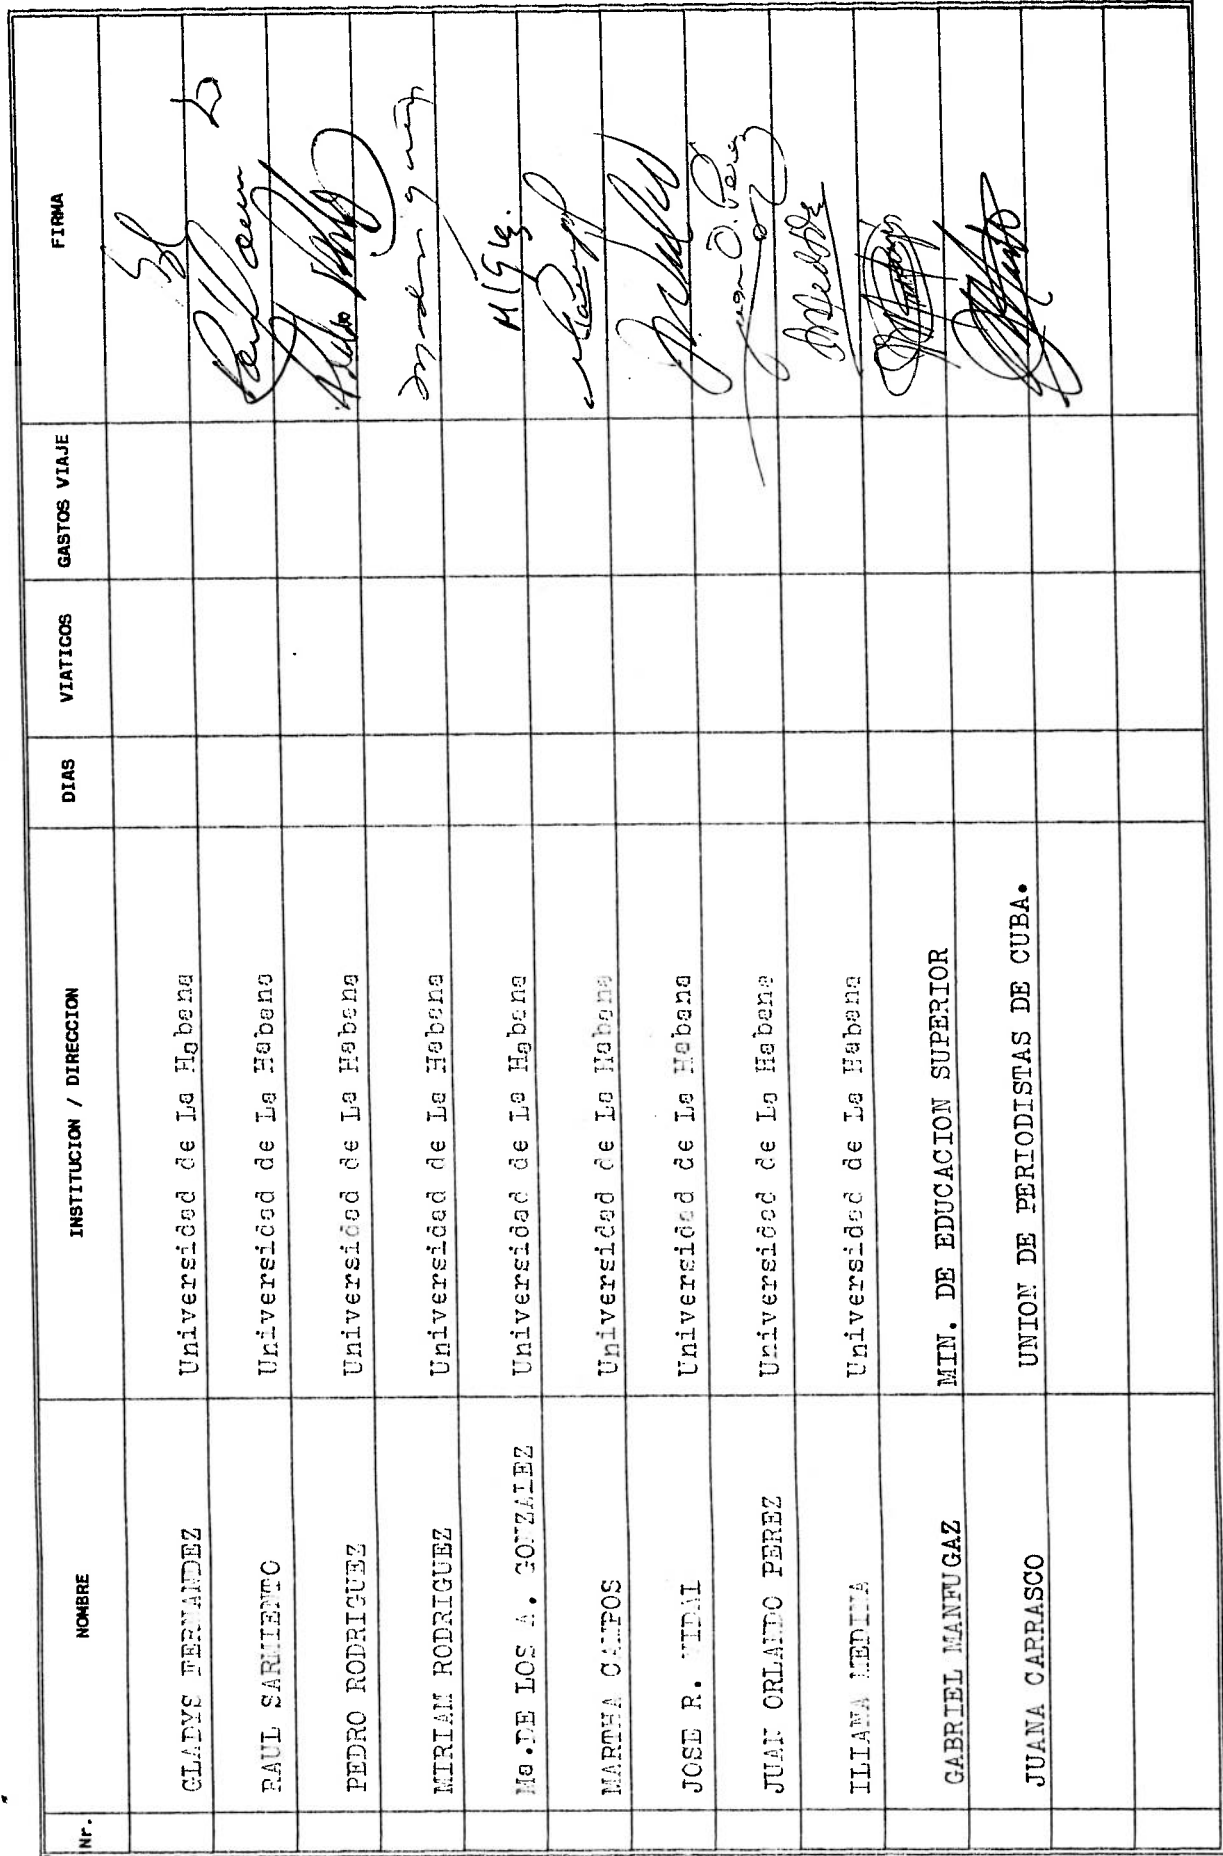 Nr. NOMBRE INSTITUCION / DIRECCION DIAS VIATICOS GASTOS VIAJE FIRMA
GLADYS FERNANDEZ Universidad de La Habana
RAUL SARMIENTO Universidad de La Habana
PEDRO RODRIGUEZ Universidad de La Habana
MIRIAM RODRIGUEZ Universidad de La Habana
Ma.DE LOS A. GONZALEZ Universidad de La Habana M Glez.
MARTHA CAMPOS Universidad de La Habana
JOSE R. VIDAL Universidad de La Habana
JUAN ORLANDO PEREZ Universidad de La Habana Juan O. Perez
ILIANA MEDINA Universidad de La Habana
GABRIEL MANFUGAZ MIN. DE EDUCACION SUPERIOR
JUANA CARRASCO UNION DE PERIODISTAS DE CUBA.